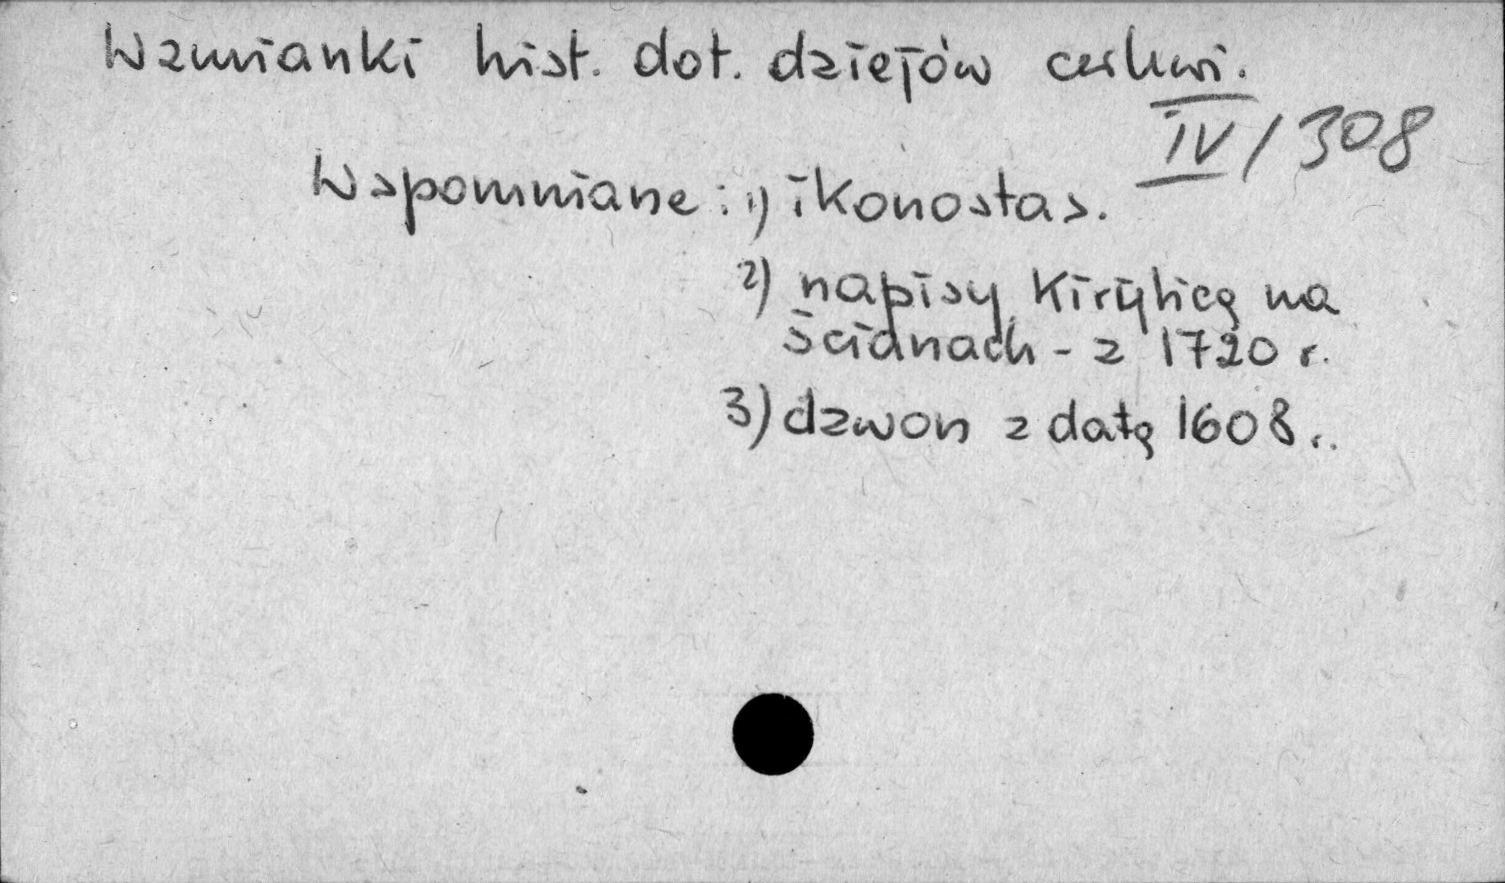 Wzmianki hist. dot. dziejów cerkwi.
IV/308
Wspomniane: 1) ikonostas.
2) napisy Kirylicą na
ścianach - z 1720 r.
3) dzwon z datą 1608 r.